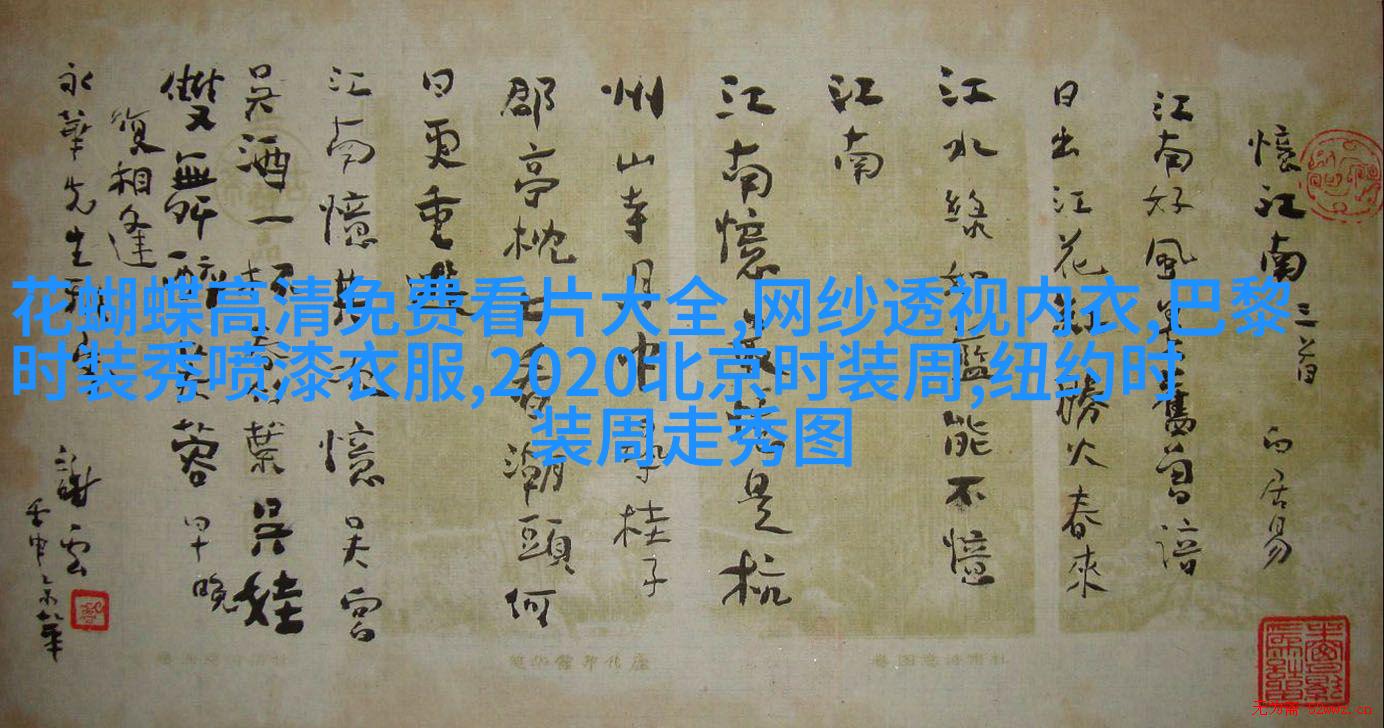 花蝴蝶高清免费看片大全,网纱透视内衣,巴黎
时装秀喷漆衣服,2020北京时装周,纽约时
装周走秀图
憶江南 三首 白居易
江南好風景舊曾諳
日出江花紅勝火春來
江水綠如藍能不憶
江南
江南憶最憶是杭
州山寺月中尋桂子
郡亭枕上看潮頭何
日更重遊
江南憶其次憶吳宮
吳酒一杯春竹葉吳娃
雙舞醉芙蓉早晚
復相逢
永華先生
謝云
壬申京華
无为斋 52wwz.cn